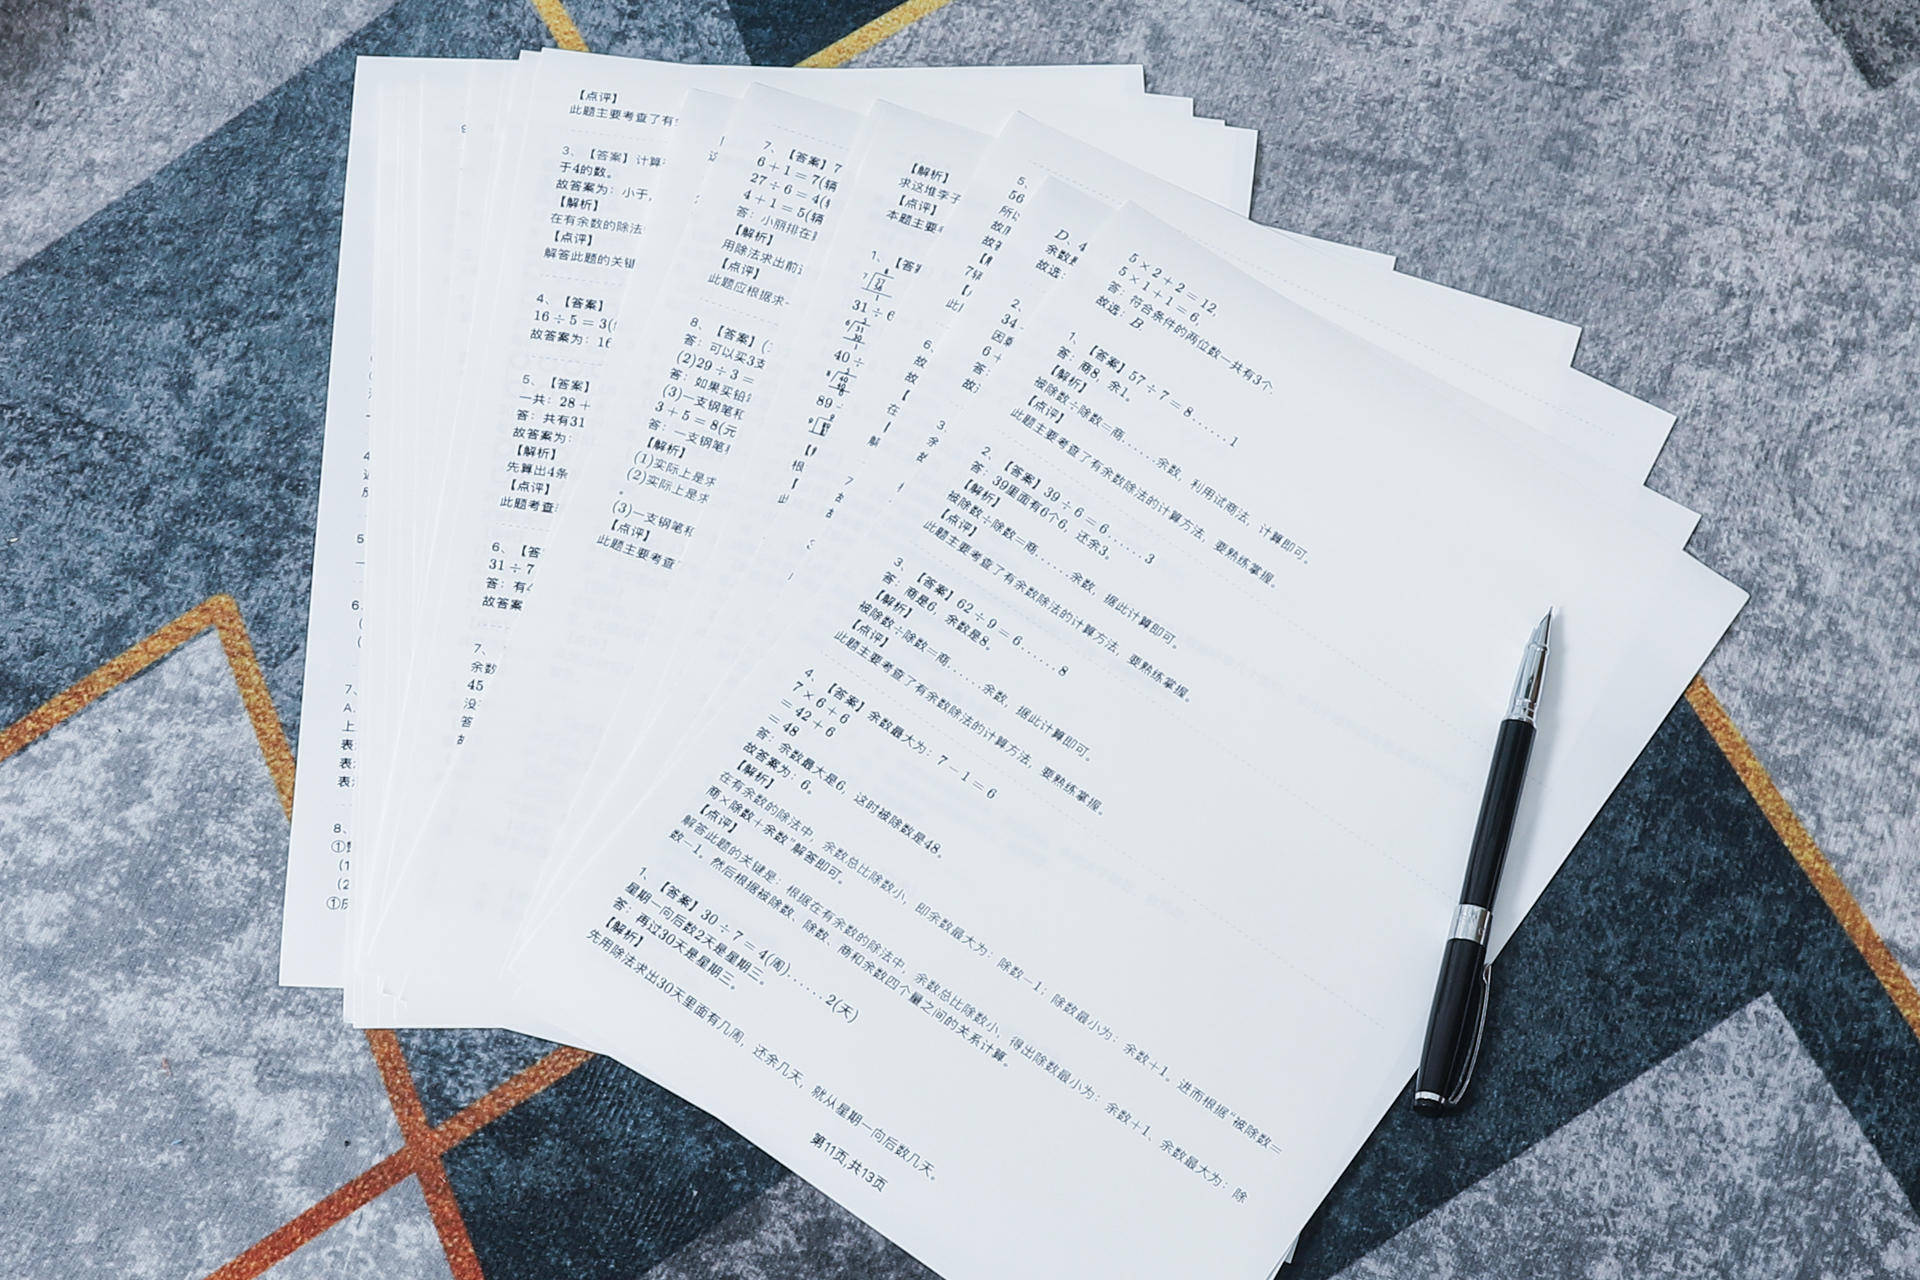 【点评】
此题主要考查了有
3、【答案】计算
于4的数。
故答案为：小于，
【解析】
在有余数的除法
【点评】
解答此题的关键
4、【答案】
16÷5＝3(
故答案为：16
5、【答案】
一共：28＋
答：共有31
故答案为：
【解析】
先算出4条
【点评】
此题考查
6、【答
31÷7
答：有4
故答案
7、
余数
45
没
答
7、
A、
上
表
表
表
8、
(1
(2
7、【答案】7
6＋1＝7(辆
27÷6＝4(
4＋1＝5(辆
答：小丽排在
【解析】
用除法求出前
【点评】
此题应根据求
8、【答案】(
答：可以买3支
(2)29÷3＝
答：如果买铅
(3)一支钢笔和
3＋5＝8(元
答：一支钢笔
【解析】
(1)实际上是求
(2)实际上是求
。
(3)一支钢笔和
【点评】
此题主要考查
【解析】
求这堆李子
【点评】
本题主要
1、【答案
31÷6
40÷
89
5、
56
所以
D、4
余数
故选：
2、
34
因
6＋
答
故
5×2＋2＝12，
5×1＋1＝6，
答：符合条件的两位数一共有3个
故选：B
1、【答案】57÷7＝8……1
答：商8，余1。
【解析】
被除数÷除数＝商……余数，利用试商法，计算即可。
【点评】
此题主要考查了有余数除法的计算方法，要熟练掌握。
2、【答案】39÷6＝6……3
答：39里面有6个6，还余3。
【解析】
被除数÷除数＝商……余数，据此计算即可。
【点评】
此题主要考查了有余数除法的计算方法，要熟练掌握。
3、【答案】62÷9＝6……8
答：商是6，余数是8。
【解析】
被除数÷除数＝商……余数，据此计算即可。
【点评】
此题主要考查了有余数除法的计算方法，要熟练掌握。
4、【答案】余数最大为：7－1＝6
7×6＋6
＝42＋6
＝48
答：余数最大是6，这时被除数是48。
故答案为：6。
【解析】
在有余数的除法中，余数总比除数小，即余数最大为：除数－1；除数最小为：余数＋1。进而根据“被除数＝
商×除数＋余数”解答即可。
【点评】
解答此题的关键是：根据在有余数的除法中，余数总比除数小，得出除数最小为：余数＋1、余数最大为：除
数－1。然后根据被除数、除数、商和余数四个量之间的关系计算。
1、【答案】30÷7＝4(周)……2(天)
星期一向后数2天是星期三。
答：再过30天是星期三。
【解析】
先用除法求出30天里面有几周，还余几天，就从星期一向后数几天。
第11页,共13页